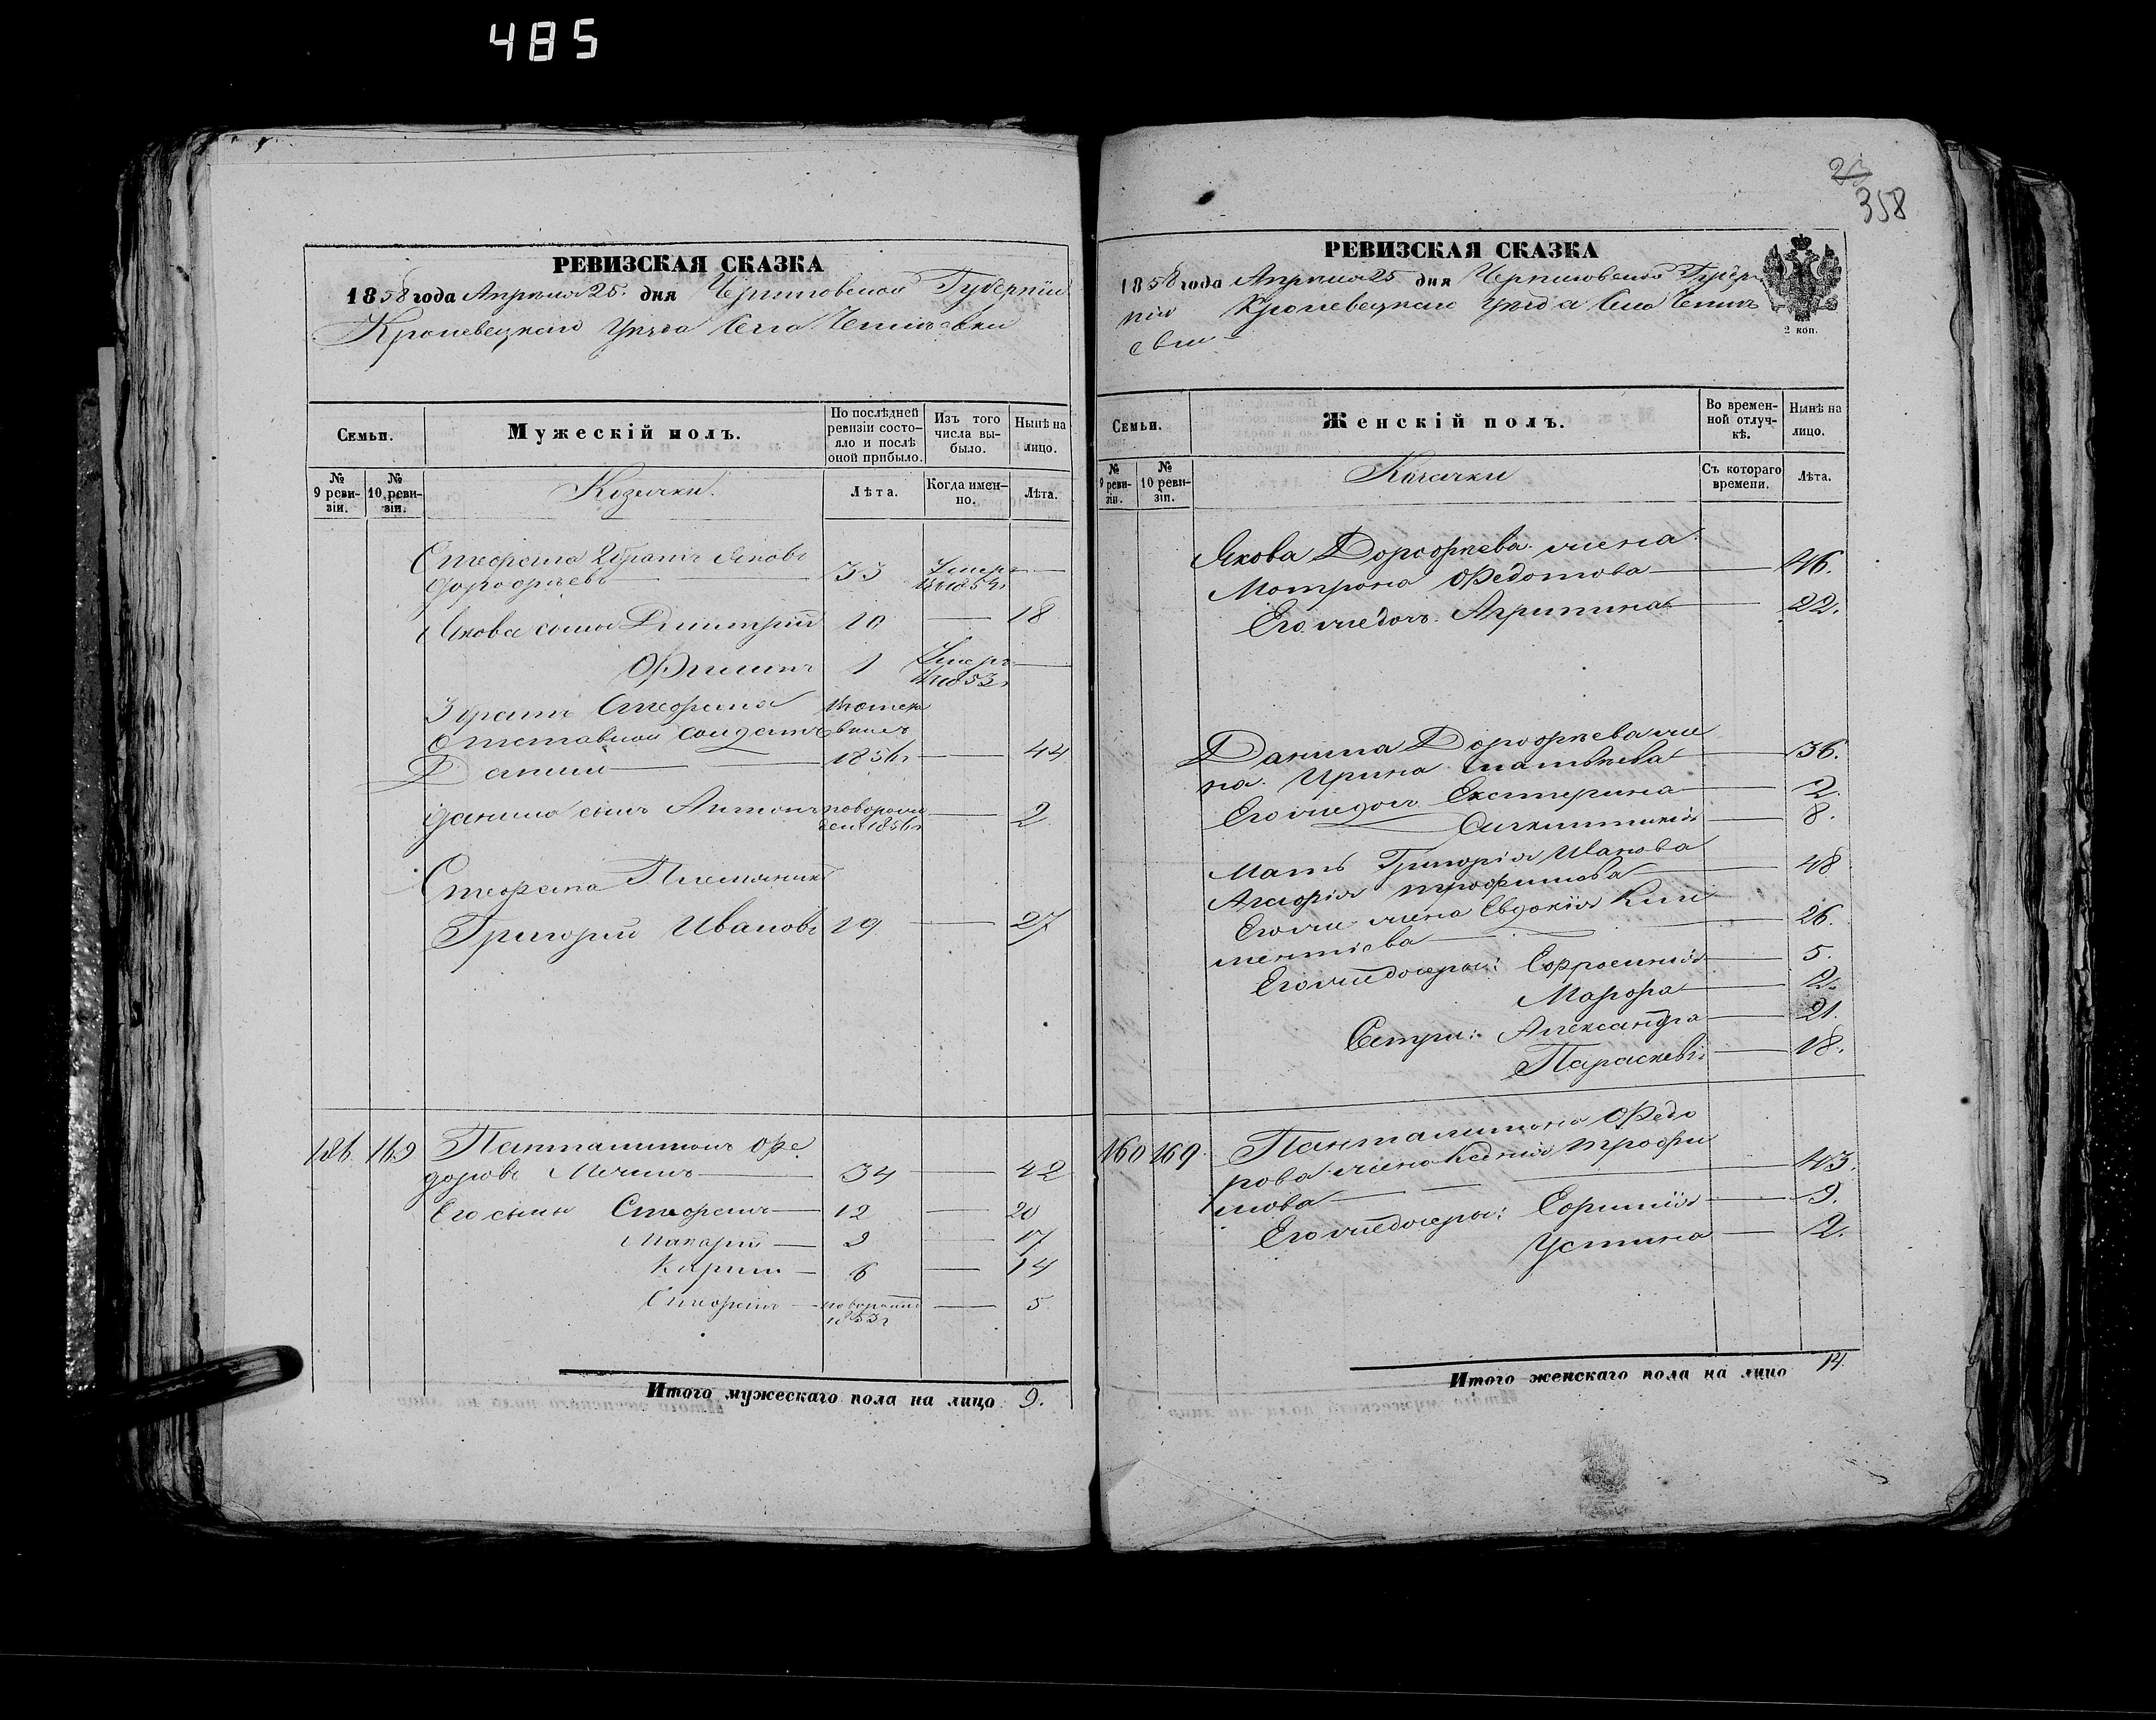 485
РЕВИЗСКАЯ СКАЗКА
1858 года Апреля 25 дня Черниговской Губернии
Кролевецкаго Уѣзда Села
Семьи.
Мужескій полъ.
По послѣдней ревизіи состояло и послѣ оной прибыло.
Изъ того числа выбыло.
Нынѣ на лицо.
№ 9 ревизіи.
№ 10 ревизіи.
Козачки.
Лѣта.
Когда именно.
Лѣта.
Стефана братъ Яковъ
Дорофѣевъ 33 Умеръ
Якова сынъ Дмитрій 10 — 18
Филипъ 1 Умеръ 1853
Стефана
Отставной солдатъ
Данило 1856 — 44
Данила сынъ Антонъ 1856 — 2
Стефана Племянникъ
Григорій Ивановъ 19 — 27
186 169 Панталимонъ Фе
доровъ 34 — 42
Его сыны Стефанъ — 12 — 20
Макарій — 9 — 17
Кирилъ — 6 — 14
Стефанъ — 1853 — 5
Итого мужескаго пола на лицо 9.
23
358
РЕВИЗСКАЯ СКАЗКА
1858 года Апреля 25 дня Черниговской Губер
ніи Кролевецкаго Уѣзда Села
2 коп.
Семьи.
Женскій полъ.
Во временной отлучкѣ.
Нынѣ на лицо.
№ 9 ревизіи.
№ 10 ревизіи.
Козачки
Съ котораго времени.
Лѣта.
Якова Дорофѣева жена
Мотрона Федотова — 46.
Его же дочь Агрипина — 22.
Данила Дорофѣева же
на Ирина — 36.
Его же дочь Екатерина — 2.
— 8.
Мать Григорія Иванова
Агафія Трофимова — 48
Его же жена Евдокія Кли
ментіева — 26.
Его же дочеры: Ефросинія — 5.
Марфа — 2.
Сестры: Александра — 21.
Параскевія — 18.
160 169 Панталимона Федо
рова жена Ксенія Трофи
мова — 43.
Его же дочеры: Ефимія — 9.
Устина — 2.
Итого женскаго пола на лицо 14.